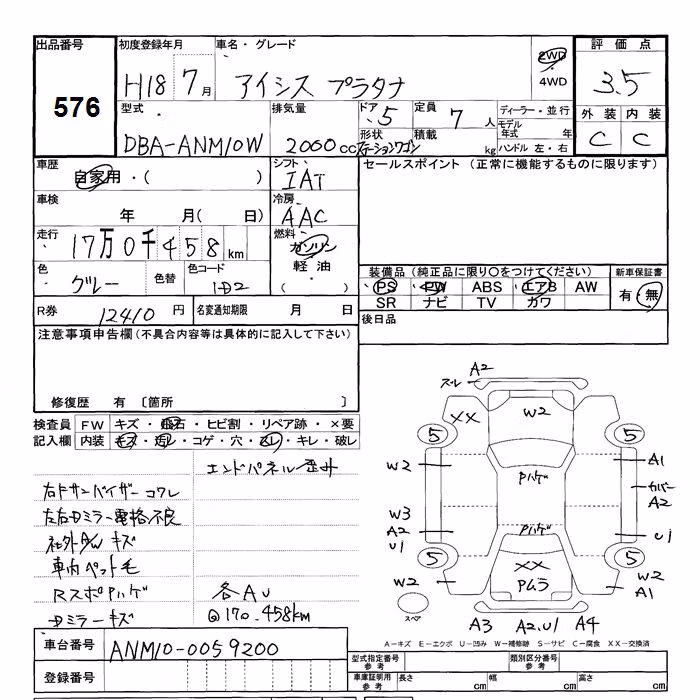 出品番号 初度登録年月 車名・グレード 評価点
576
H18 7月 アイシス プラタナ 2WD 3.5
4WD
型式 排気量 ドア 5 定員 7人 ディーラー・並行 外装 内装
モデル年式 年
DBA-ANM10W 2000cc 形状 ステーションワゴン 積載 kg ハンドル 左・右 C C
車歴 シフト セールスポイント (正常に機能するものに限ります)
自家用・( ) IAT
車検 冷房
年 月(日) AAC
走行 燃料
17万0千458km ガソリン
色 色替 色コード 軽油 装備品 (純正品に限り○をつけてください) 新車保証書
グレー 1D2 ( ) PS PW ABS エアB AW 有・無
SR ナビ TV カワ
R券 12410円 名変通知期限 月 日 後日品
注意事項申告欄 (不具合内容等は具体的に記入して下さい)
修復歴 有 〔箇所 〕
検査員 FW キズ・飛石・ヒビ割・リペア跡・×要
記入欄 内装 キズ・汚レ・コゲ・穴・スレ・キレ・破レ
エンドパネル歪み
右Fサンバイザーコワレ
左右Dミラー電格不良
社外A/Wキズ
車内ペット毛
RスポPハゲ 各AU
Dミラーキズ @170.458km
A2
スレ
XX W2
5 5
W2 Pハゲ A1
カバー
A2
W3 Pハゲ
A2 U1
U1
5 XX 5
W2 Pムラ W2
A1
スペア
A3 A2.U1 A4
A=キズ E=エクボ U=凹み W=補修跡 S=サビ C=腐食 XX=交換済
車台番号 ANM10-0059200
型式指定番号 参考 類別区分番号 参考
登録番号 車庫証明用 参考 長さ cm 幅 cm 高さ cm